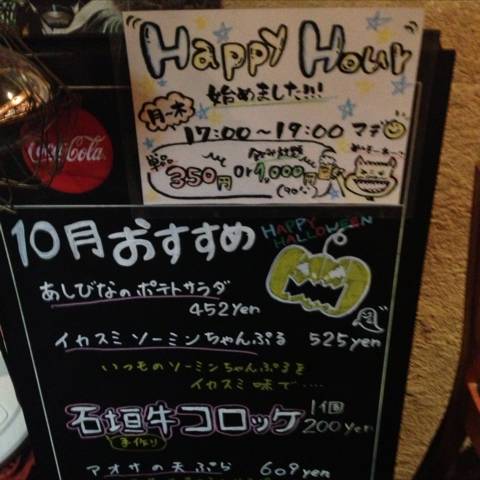 Happy Hour
始めました!!!
月〜木
17:00〜19:00マデ
単品 350円 or 1,000円
Coca-Cola
10月おすすめ
HAPPY
HALLOWEEN
あしびなのポテトサラダ
452yen
イカスミソーミンちゃんぷる 525yen
いつものソーミンちゃんぷるを
イカスミ味で‥‥
石垣牛コロッケ 1個
200yen
手作り
アオサの天ぷら 609yen